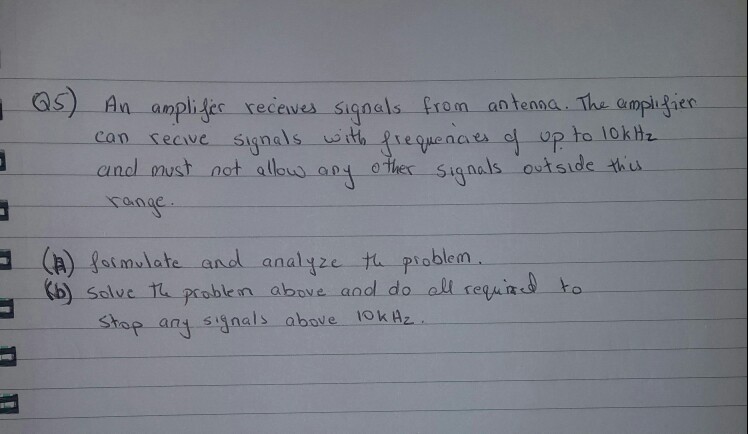 Q5) An amplifier receives signals from antenna. The amplifier
can recive signals with frequencies of up to 10kHz
and must not allow any other signals outside this
range.
(A) formulate and analyze the problem.
(b) solve the problem above and do all required to
stop any signals above 10kHz.